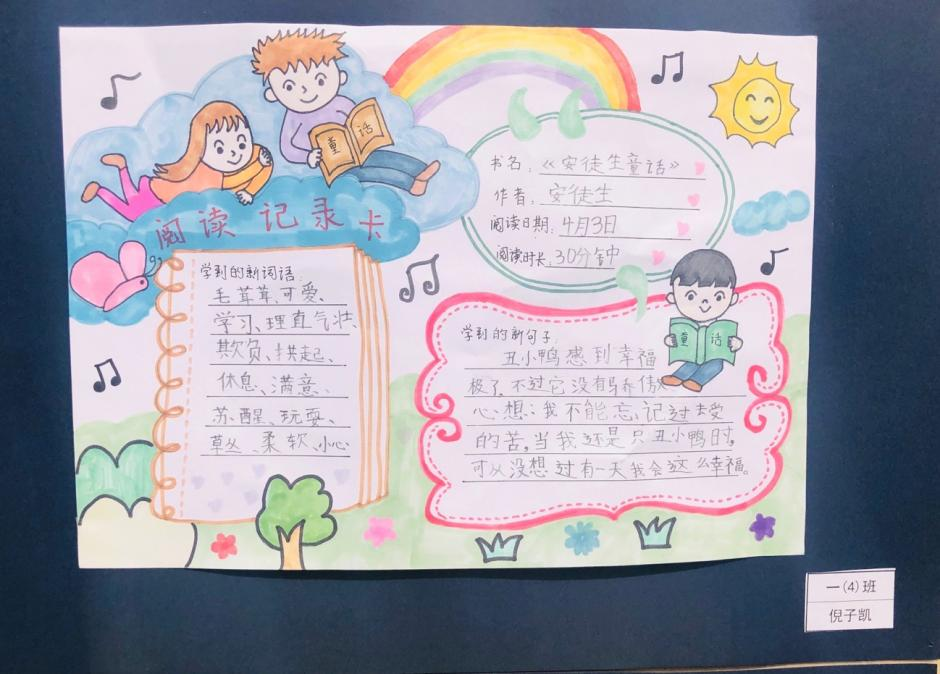 童话
阅读记录卡
学到的新词语:
毛茸茸、可爱、
学习、理直气壮、
欺负、拱起、
休息、满意、
苏醒、玩耍、
草丛、柔软、小心
书名:《安徒生童话》
作者:安徒生
阅读日期:4月3日
阅读时长:30分钟
童话
学到的新句子:
丑小鸭感到幸福
极了,不过它没有骄傲
心想:我不能忘记过去受
的苦,当我还是只丑小鸭时,
可以没想过有一天我会这么幸福。
一(4)班
倪子凯